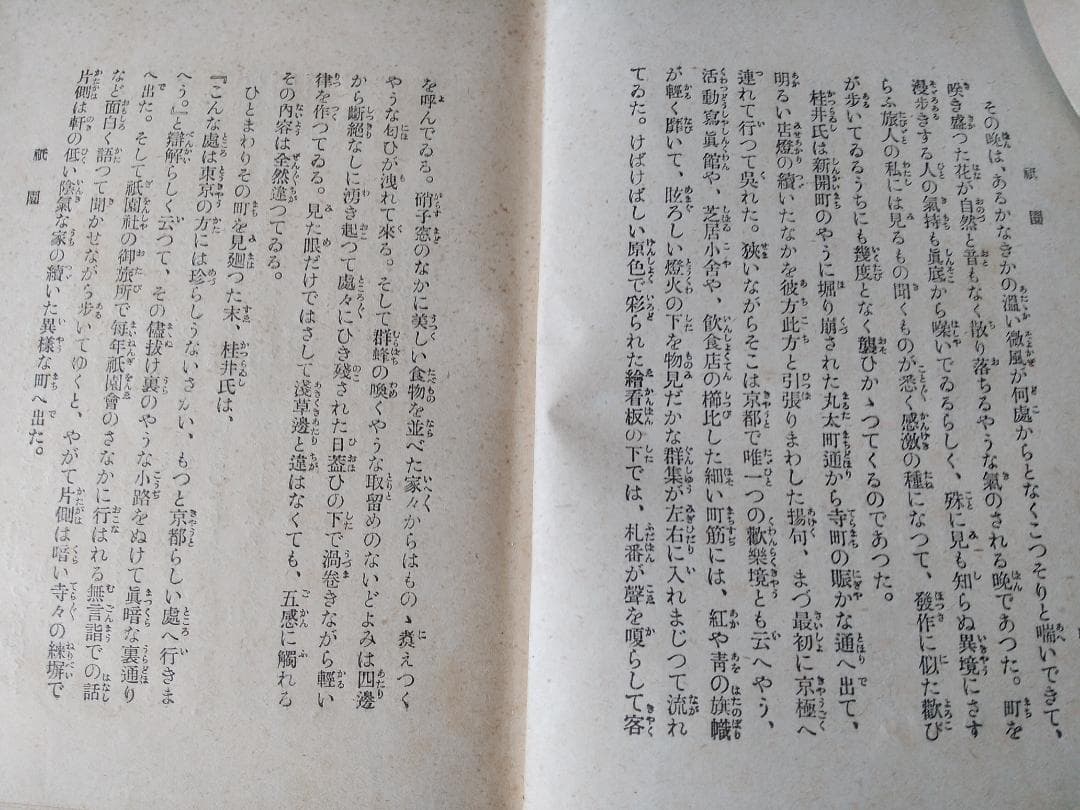 祇園
その晩は、あるかなきかの溫い微風が何處からとなくこつそりと喘いできて、
咲き盛つた花が自然と音もなく散り落ちるやうな氣のされる晩であつた。町を
漫歩きする人の氣持も眞底から噪いでゐるらしく、殊に見も知らぬ異境にさす
らふ旅人の私には見るもの聞くものが悉く感激の種になつて、發作に似た歡び
が歩いてゐるうちにも幾度となく襲ひかゝつてくるのであつた。
桂井氏は新開町のやうに堀り崩された丸太町通から寺町の賑かな通へ出て、
明るい店燈の續いたなかを彼方此方と引張りまわした揚句、まづ最初に京極へ
連れて行つて吳れた。狹いながらそこは京都で唯一つの歡樂境とも云へやう、
活動寫眞館や、芝居小舍や、飲食店の櫛比した細い町筋には、紅や靑の旗幟
が輕く靡いて、眩ろしい燈火の下を物見だかな群集が左右に入れまじつて流れ
てゐた。けばけばしい原色で彩られた繪看板の下では、札番が聲を嗄らして客
を呼んでゐる。硝子窓のなかに美しい食物を並べた家々からはものゝ煑えつく
やうな匂ひが洩れて來る。そして群蜂の喚くやうな取留めのないどよみは四邊
から斷絕なしに湧き起つて處々にひき殘された日蓋ひの下で渦卷きながら輕い
律を作つてゐる。見た眼だけではさして淺草邊と違はなくても、五感に觸れる
その內容は全然違つてゐる。
ひとまわりその町を見廻つた末、桂井氏は、
『こんな處は東京の方には珍らしうないさかい、もつと京都らしい處へ行きま
へう。』と辯解らしく云つて、その儘拔け裏のやうな小路をぬけて眞暗な裏通り
へ出た。そして祇園社の御旅所で每年祇園會のさなかに行はれる無言詣での話
など面白く語つて聞かせながら歩いてゆくと、やがて片側は暗い寺々の練塀で
片側は軒の低い陰氣な家の續いた異樣な町へ出た。
祇園